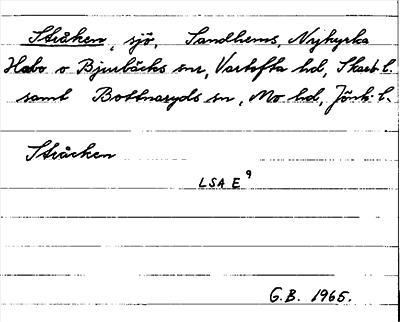 Stråken, sjö, Sandhems, Nykyrka
Habo o Bjurbäcks snr, Vartofta hd, Skarb. l.
samt Bottnaryds sn, Mo hd, Jönk. l.
Stråcken
LSA E 9
G.B. 1965.